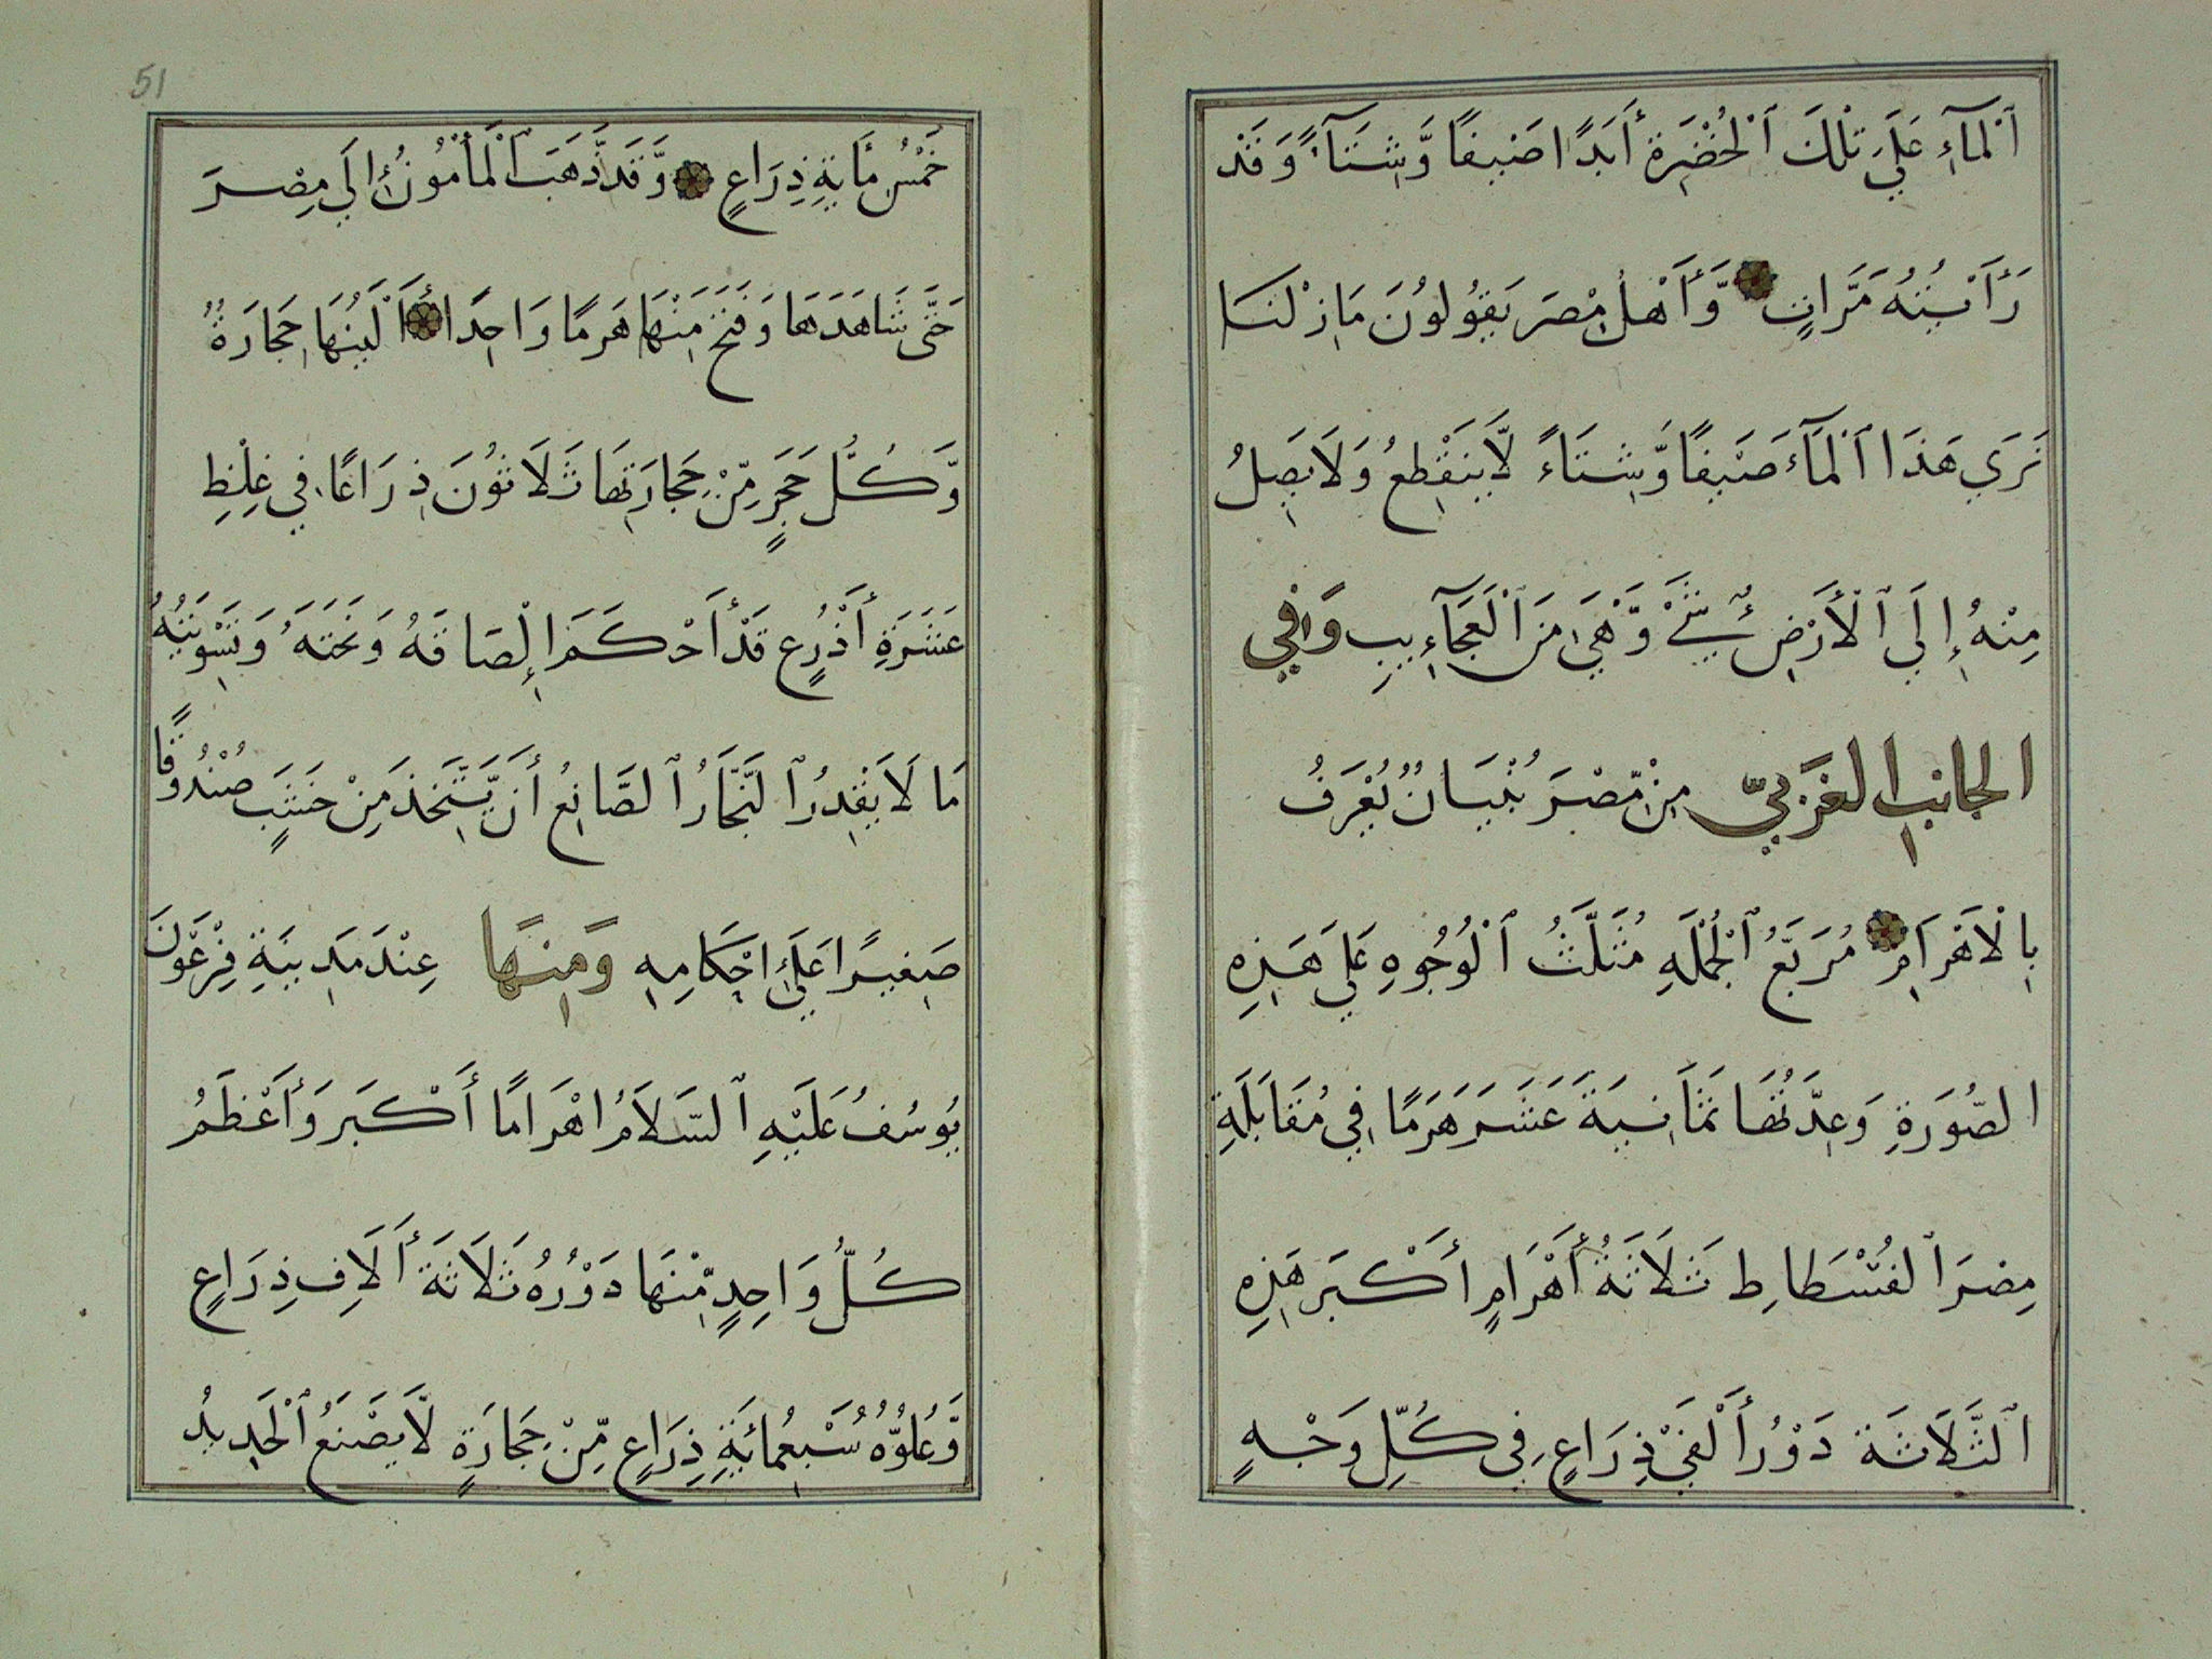 ٱلْمَآءِ عَلَي تِلْكَ ٱلْخُضْرَةِ أَبَدًا صَيْفًا وَّشِتَآءً وَقَدْ
رَأَيْتُهُ مَرَّاتٍ وَّأَهْلُ مِصْرَ يَقُولُونَ مَازِلْنَا
نَرَي هَذَا ٱلْمَآءَ صَيْفًا وَّشِتَاءً لَّايَنْقَطِعُ وَلَايَصِلُ
مِنْهُ إِلَي ٱلْأَرْضِ شَيْءٌ وَّهْيَ مِنَ ٱلْعَجَآءِيبِ وَفِي
الجانِبِ الغَرْبِيّ مِنْ مِّصْرَ بُنْيَانٌ يُعْرَفُ
بِالْاَهْرَامِ مُرَبَّعُ ٱلْجُمْلَةِ مُثَلَّثُ ٱلْوُجُوهِ عَلَي هَذِهِ
الصُّورَةِ وَعِدَّتُهَا ثَمَانِيَةَ عَشَرَ هَرَمًا فِي مُقَابَلَةِ
مِصْرَ ٱلفُسْطَاطِ ثَلَاثَةُ أَهْرَامٍ أَكْبَرَ هَذِهِ
ٱلثَّلَاثَةِ دَوْرُ أَلْفَيْ ذِرَاعٍ فِي كُلِّ وَجْهٍ
51
خَمْسُ مِأَيةِ ذِرَاعٍ وَّقَد ذَّهَبَ ٱلْمَأْمُونُ إِلَي مِصْرَ
حَتَّى شَاهَدَهَا وَفَتَحَ مِنْهَا هَرَمًا وَاحِدًا أَلَيْنُهَا حِجَارَةً
وَّكُلُّ حَجَرٍ مِّنْ حِجَارَتِهَا ثَلَاثُونَ ذِرَاعًا فِي غِلْظِ
عَشَرَةِ أَذْرُعٍ قَدْ أَحْكَمَ إِلْصَاقَهُ وَنَحْتَهُ وَتَسْوِيَتَهُ
مَا لَا يَقْدِرُ ٱلنَّجَّارُ ٱلصَّانِعُ أَن يَّتَّخِذَ مِنْ خَشَبٍ صُنْدُوقًا
صَغِيرًا عَلَي اِحْكَامِهِ وَمِنْهَا عِنْدَ مَدِينَةِ فِرْعَوْنَ
يُوسُفُ عَلَيْهِ ٱلسَّلَامُ اهْرَامًا أَكْبَرَ وَأَعْظَمُ
كُلُّ وَاحِدٍ مِّنْهَا دَوْرُهُ ثَلَاثَةَ أَلَافِ ذِرَاعٍ
وَّعُلُوُّهُ سُبْعُمائَةِ ذِرَاعٍ مِّنْ حِجَارَةٍ لَّايَصْنَعُ ٱلْحَدِيدُ